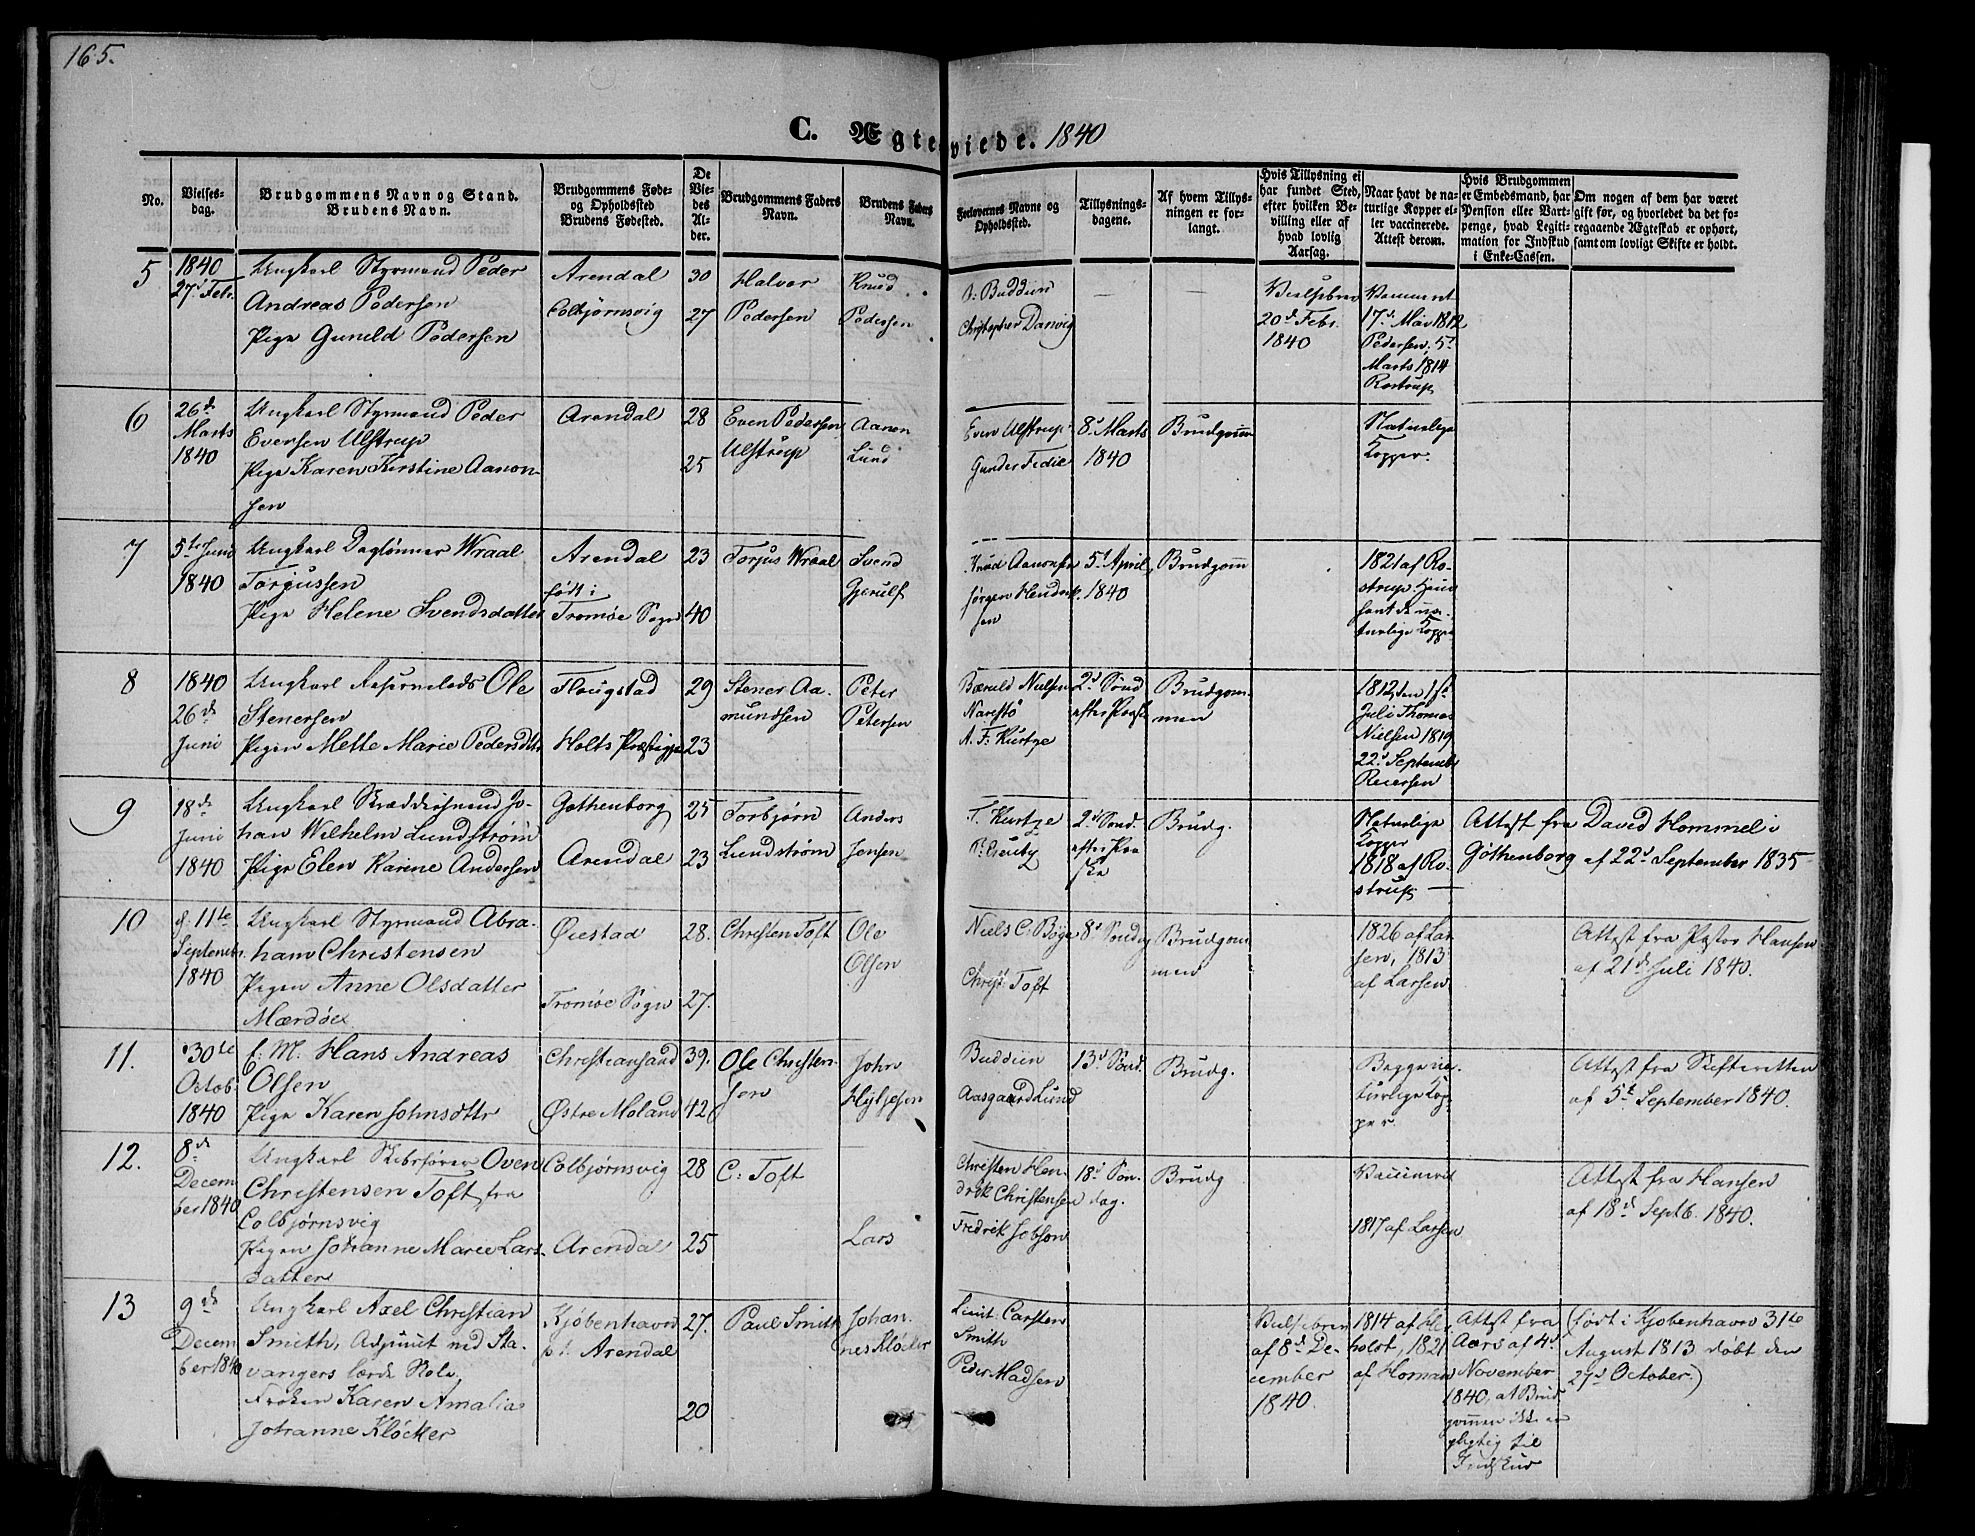 165.
C. Ægteviede. 1840
No.
Vielses-
dag.
Brudgommens Navn og Stand.
Brudens Navn.
Brudgommens Føde-
og Opholdssted
Brudens Fødested.
De
Vie-
des
Al-
der.
Brudgommens Faders
Navn.
Brudens Faders
Navn.
Forlovernes Navne og
Opholdssted.
Tillysnings-
dagene.
Af hvem Tillys-
ningen er for-
langt.
Hvis Tillysning ei
har fundet Sted,
efter hvilken Be-
villing eller af
hvad lovlig
Aarsag.
Naar havt de na-
turlige Kopper el-
ler vaccinerede.
Attest derom.
Hvis Brudgommen
er Embedsmand, har
Pension eller Vart-
penge, hvad Legiti-
mation for Indskud
i Enke-Cassen.
Om nogen af dem har været
gift før, og hvorledet da det fo-
regaaende Ægteskab er ophørt,
samt om lovligt Skifte er holdt.
5
1840
27d Febr.
Ungkarl Styrmand Peder
Andreas Pedersen
Pige Gunild Pedersen
Arendal
Colbjørnsvig
30
27
Halvor
Pedersen
Knud
Pedersen
Christopher Danvig
— —
20d Febr.
1840
17d Mai 1812
Pedersen. 5t
Marts 1814
Rostrup
6
26d
Marts
1840
Ungkarl Styrmand Peder
Evensen Ulstrup
Pige Karen Kirstine Aanon-
sen
Arendal
28
25
Even Pedersen
Ulstrup
Aanon
Lund
Even Ulstrup
Gunder Fedie
8d Marts
1840
Brudgom
Naturlige
Kopper.
7
5te Juni
1840
Ungkarl Daglønner Wraal
Torgussen
Pige Helene Svendsdatter
Arendal
født i
Tromøe Sogn
23
40
Torjus Wraal
Svend
Gjerulf
Knud Aanonsen
Jørgen Hendrik-
sen
5t April
1840
Brudgom
1821 af Ro-
strup. Hun
havt de na-
turlige Kopper
8
1840
26d
Juni
Ungkarl Ole
Stenersen
Pigen Mette Marie Pedersdtr
Flougstad
Holts Præstegj
29
23
Stener Aa-
mundsen
Peter
Petersen
Nielsen
Narestö
A. F: Kurtze
2d Sönd
efter Paaske
Brudgom-
men
1812 den 1ste
Juli Thomas
Nielsen 1819
22d Septembr
Reiersen
9
18d
Juni
1840
Ungkarl Skræddersvend Jo-
han Wilhelm Lundstrøm
Pige Elen Karine Andersen
Gothenborg
Arendal
25
23
Torbjørn
Lundstrøm
Anders
Jensen
T. Kurtze
2d Sönd.
efter Paa
ske
Brudg.
Naturlige
Kopper
1818 af Ro-
strup —
Attest fra David Hommel i
Gøthenborg af 22d September 1835
10
d. 11te
Septembr.
1840
Ungkarl Styrmand Abra-
ham Christensen
Pigen Anne Olsdatter
Mærdöe
Øiestad
Tromøe Sogn
28.
27.
Christen Toft
Ole
Olsen
Niels C. Bøge
Christ: Toft
8d Sondag
Brudgom
men
1826 af Lar
sen, 1813
af Larsen
Attest fra Pastor Hansen
af 21d Juli 1840.
11.
30te
Octob.
1840
E: M. Hans Andreas
Olsen
Pige Karen Johnsdttr
Christiansand
Østre Moland
39.
42
Ole Christen-
sen
John
Buddien
Aasgaard Lund
13d Sönd.
Brudg.
Begge na-
turlige Kop-
per.
Attest fra Skifteretten
af 5t September 1840.
12.
8d
Decem
ber 1840
Ungkarl Skibsfører Oven
Christensen Toft fra
Colbjørnsvig
Pigen Johanne Marie Lars-
datter
Colbjørnsvig
Arendal
28
25
C: Toft
Lars
Christen Hen-
drik Christensen
Fredrik Jobson
18d Søn-
dag.
Brudg
Vaccinered
1817 af Larsen
Attest fra Hansen
af 18d Septb. 1840.
13
9d
Decem
ber 1840
Ungkarl Axel Christian
Smith, Adjunct ved Sta-
vangers lærde Skole
Frøken Karen Amalia
Johanne Kløcker
Kjøbenhavn
p.t. Arendal
27.
20
Paul Smith
Johan-
nes Kløcker
Lieut. Carsten
Smith
Peder Madsen
Vielsebrev
af 8d De-
cember
1840.
1814 af
holdt, 1821
af Homan
Attest fra
Aars af 4d
November
1840, at Brud
gommen ikke er
pligtig til
Indskud
(født i Kjøbenhavn 31te
August 1813 døbt den
27d October.)